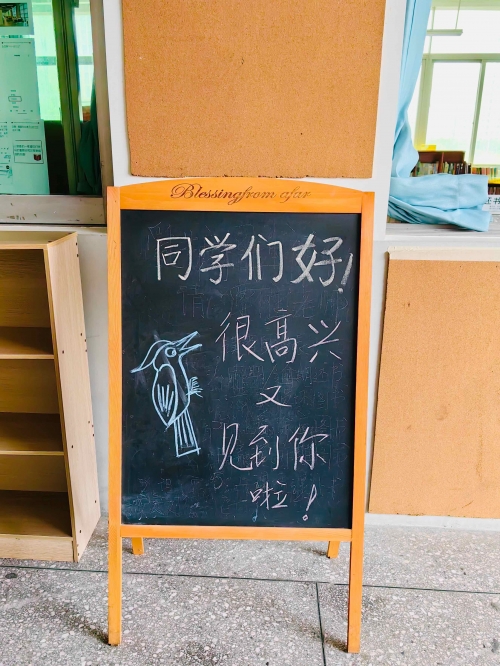 Blessing from afar
同学们好！
很高兴
又
见到你
啦！